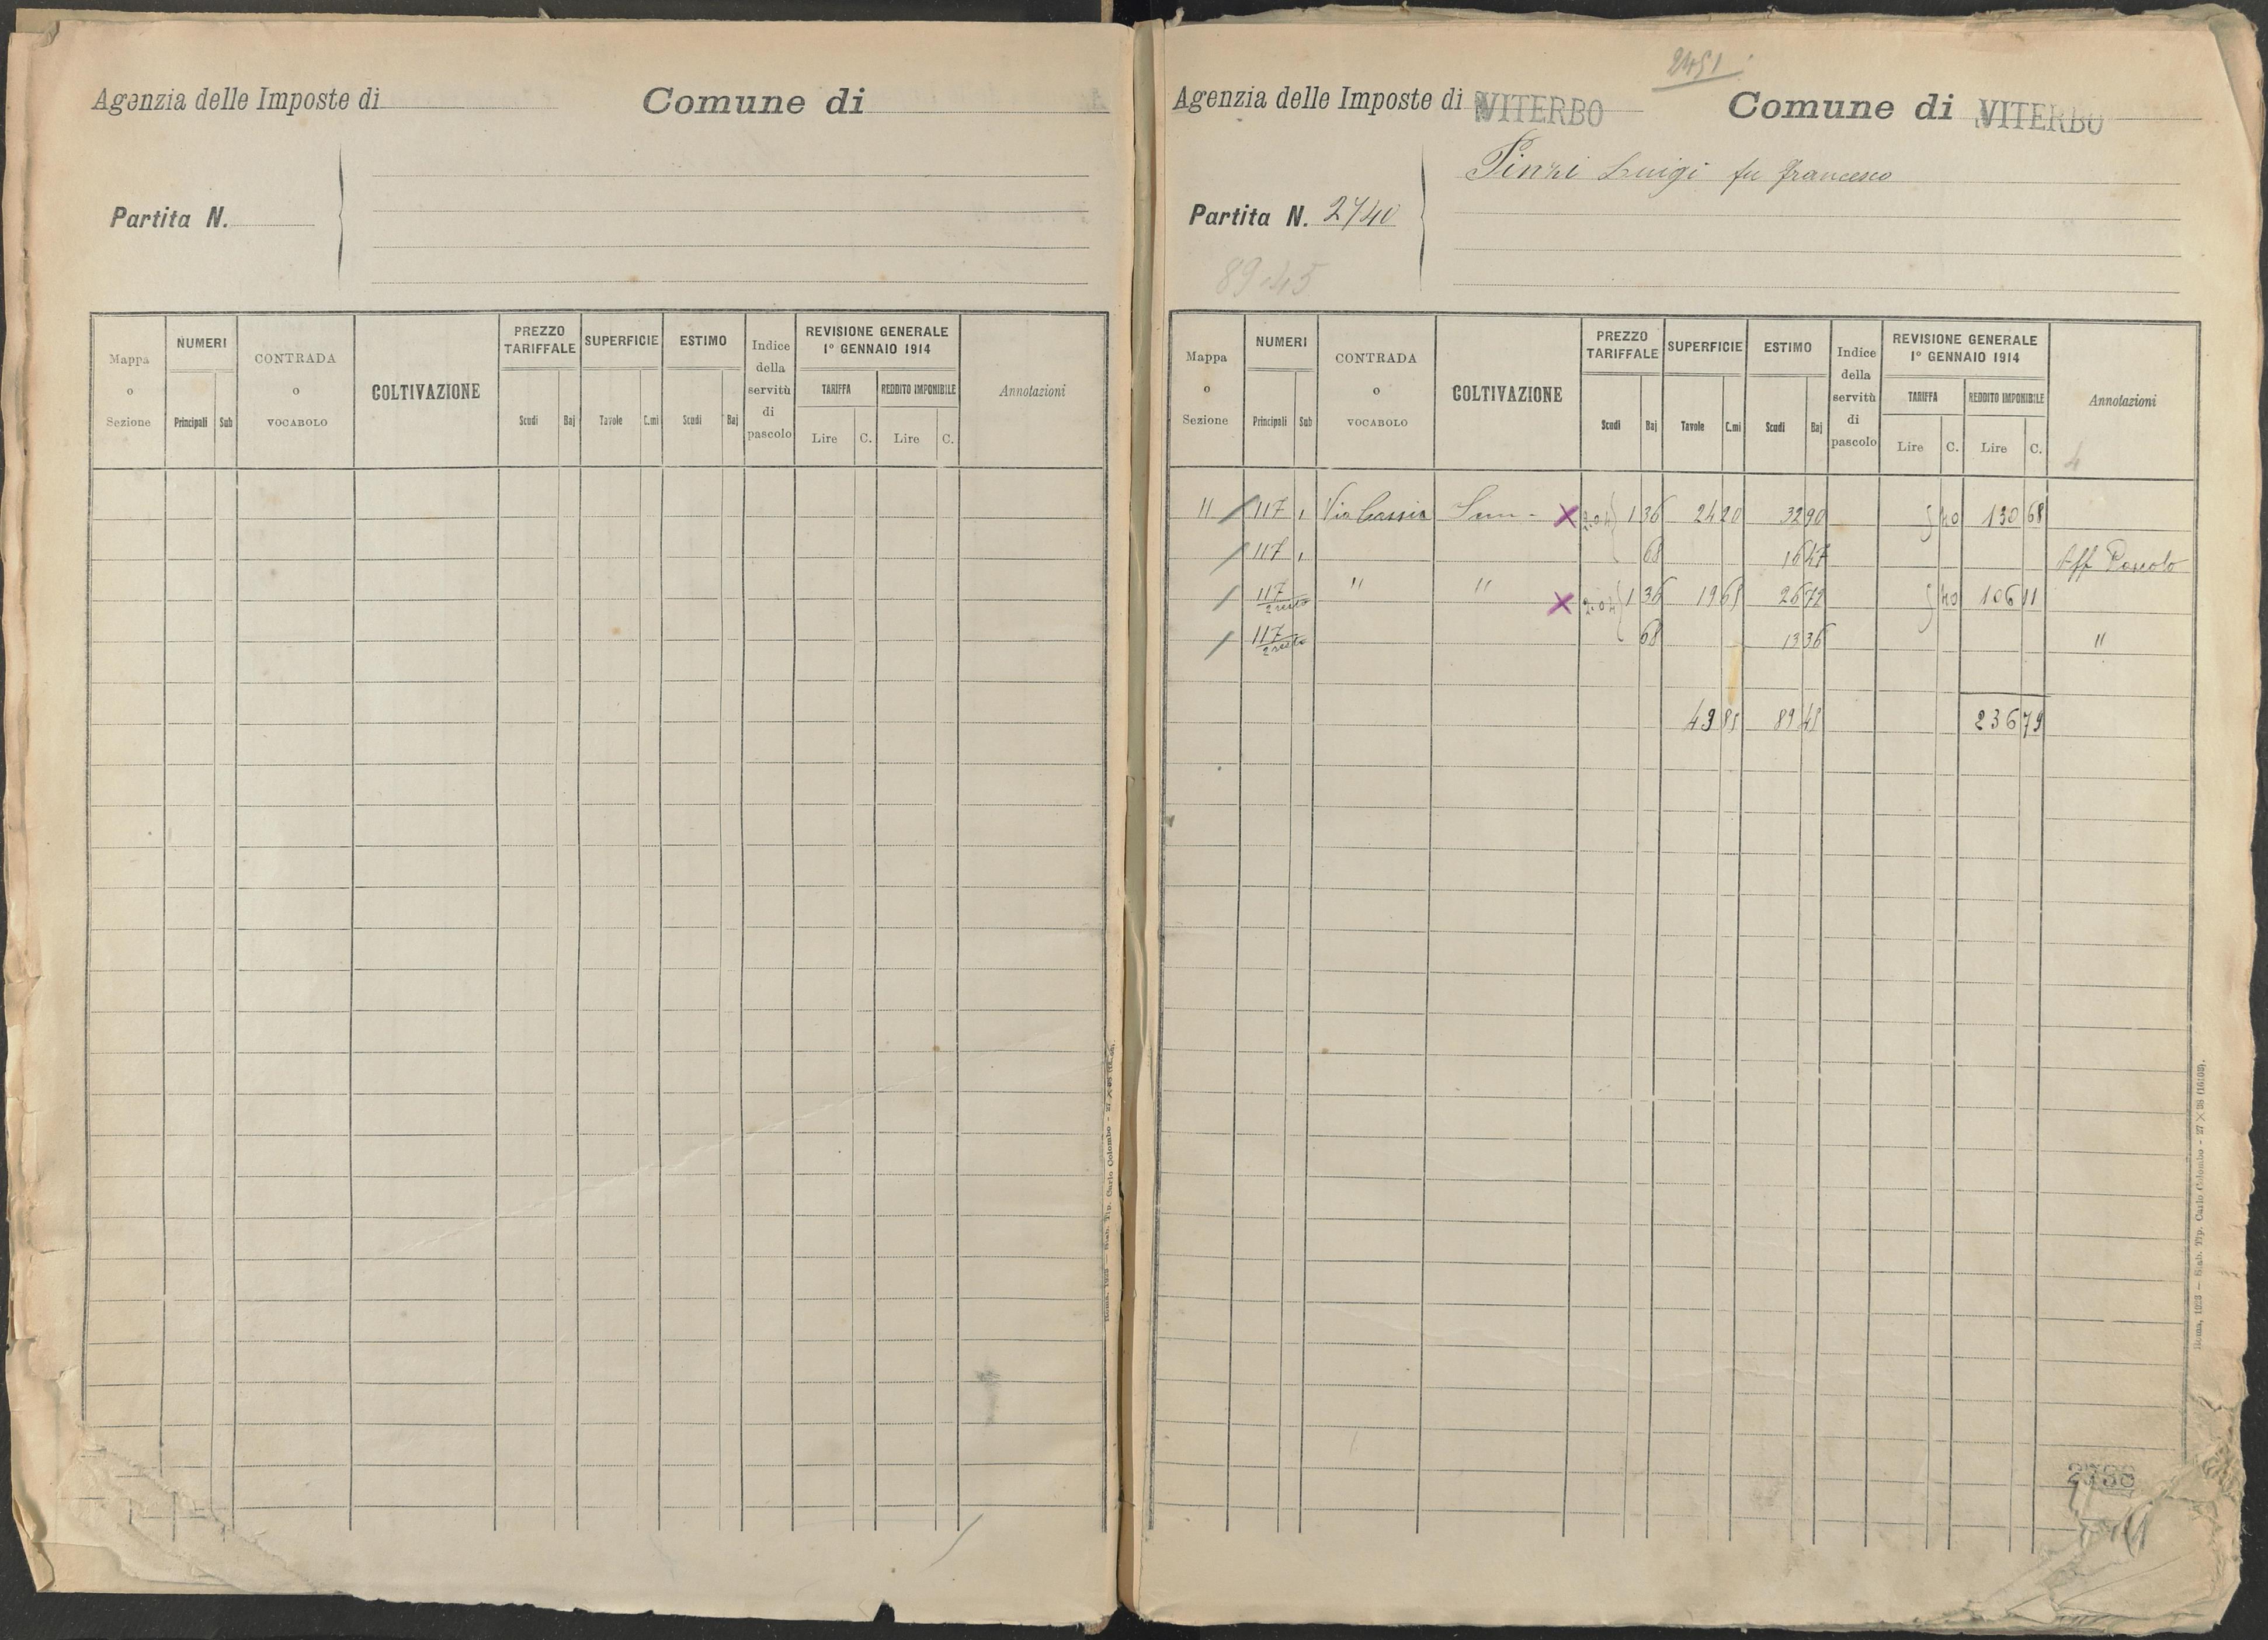 Agenzia delle Imposte di
Comune di
Partita N.
Mappa o Sezione
NUMERI
Principali
Sub
CONTRADA o VOCABOLO
COLTIVAZIONE
PREZZO TARIFFALE
Scudi
Baj
SUPERFICIE
Tavole
C.mi
ESTIMO
Scudi
Baj
Indice della servitù di pascolo
REVISIONE GENERALE
1° GENNAIO 1914
TARIFFA
REDDITO IMPONIBILE
Lire
C.
Lire
C.
Annotazioni
2451
Agenzia delle Imposte di VITERBO
Comune di VITERBO
Pinzi Luigi fu Francesco
Partita N. 2740
89.45
Mappa o Sezione
NUMERI
Principali
Sub
CONTRADA o VOCABOLO
COLTIVAZIONE
PREZZO TARIFFALE
Scudi
Baj
SUPERFICIE
Tavole
C.mi
ESTIMO
Scudi
Baj
Indice della servitù di pascolo
REVISIONE GENERALE
1° GENNAIO 1914
TARIFFA
REDDITO IMPONIBILE
Lire
C.
Lire
C.
Annotazioni
4
11 / 117 1 Via Cassia Sem - X 2.04 1 36 24 20 32 90 5 40 130 68
/ 117 1 68 16 47 Aff Pascolo
/ 117/2 resto " " X 2.04 1 36 19 65 26 72 5 40 106 11
/ 117/2 resto 68 13 36 "
43 85 89 45 236 79
Roma, 1923 — Stab. Tip. Carlo Colombo - 27 × 38 (16108).
2738